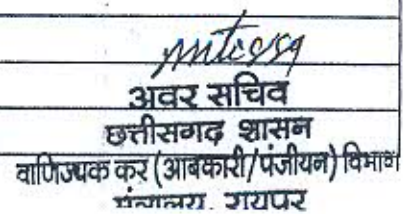 अवर सचिव
छत्तीसगढ़ शासन
वाणिज्यक कर (आबकारी/पंजीयन) विभाग
मंत्रालय, रायपुर